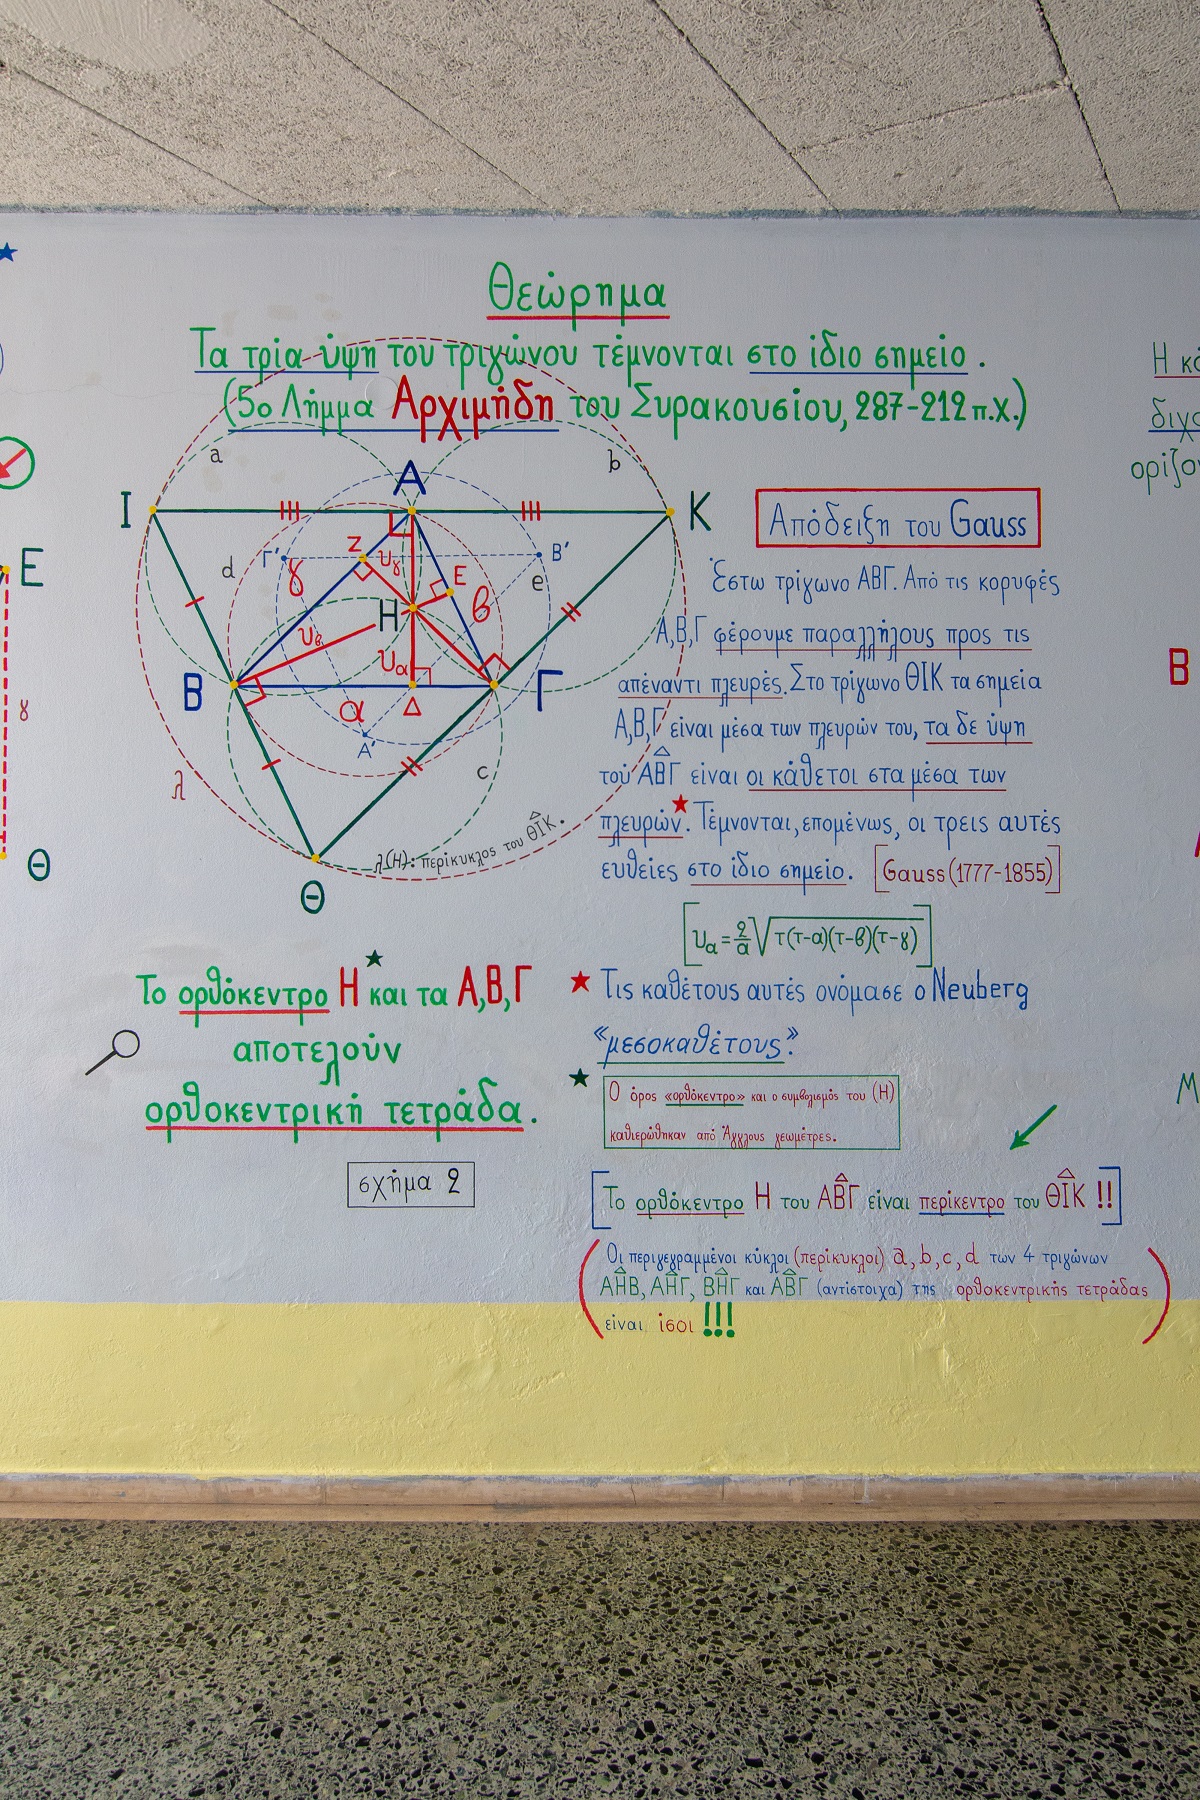 Θεώρημα
Τα τρία ύψη του τριγώνου τέμνονται στο ίδιο σημείο.
(5ο Λήμμα Αρχιμήδη του Συρακουσίου, 287-212 π.χ.)
a
b
A
I
K
Z
Γ'
B'
d
γ
υγ
E
e
H
β
υβ
υα
B
Γ
α
Δ
A'
λ
c
λ(H): περίκυκλος του ΘΙ̂Κ.
Θ
Απόδειξη του Gauss
Έστω τρίγωνο ΑΒΓ. Από τις κορυφές
Α,Β,Γ φέρουμε παραλλήλους προς τις
απέναντι πλευρές. Στο τρίγωνο ΘΙΚ τα σημεία
Α,Β,Γ είναι μέσα των πλευρών του, τα δε ύψη
τού ΑΒ̂Γ είναι οι κάθετοι στα μέσα των
πλευρών★. Τέμνονται, επομένως, οι τρεις αυτές
ευθείες στο ίδιο σημείο. [Gauss (1777-1855)]
[υα = 2/α √τ(τ-α)(τ-β)(τ-γ)]
★ Τις καθέτους αυτές ονόμασε ο Neuberg
«μεσοκαθέτους».
★ Ο όρος «ορθόκεντρο» και ο συμβολισμός του (Η)
καθιερώθηκαν από Άγγλους γεωμέτρες.
Το ορθόκεντρο Η★ και τα Α,Β,Γ
αποτελούν
ορθοκεντρική τετράδα.
σχήμα 2
[Το ορθόκεντρο Η του ΑΒ̂Γ είναι περίκεντρο του ΘΙ̂Κ !!]
(Οι περιγεγραμμένοι κύκλοι (περίκυκλοι) a, b, c, d των 4 τριγώνων
ΑΗ̂Β, ΑΗ̂Γ, ΒΗ̂Γ και ΑΒ̂Γ (αντίστοιχα) της ορθοκεντρικής τετράδας
είναι ίσοι !!!)
E
γ
Θ
Η κ
διχ
ορίζο
B
Μ